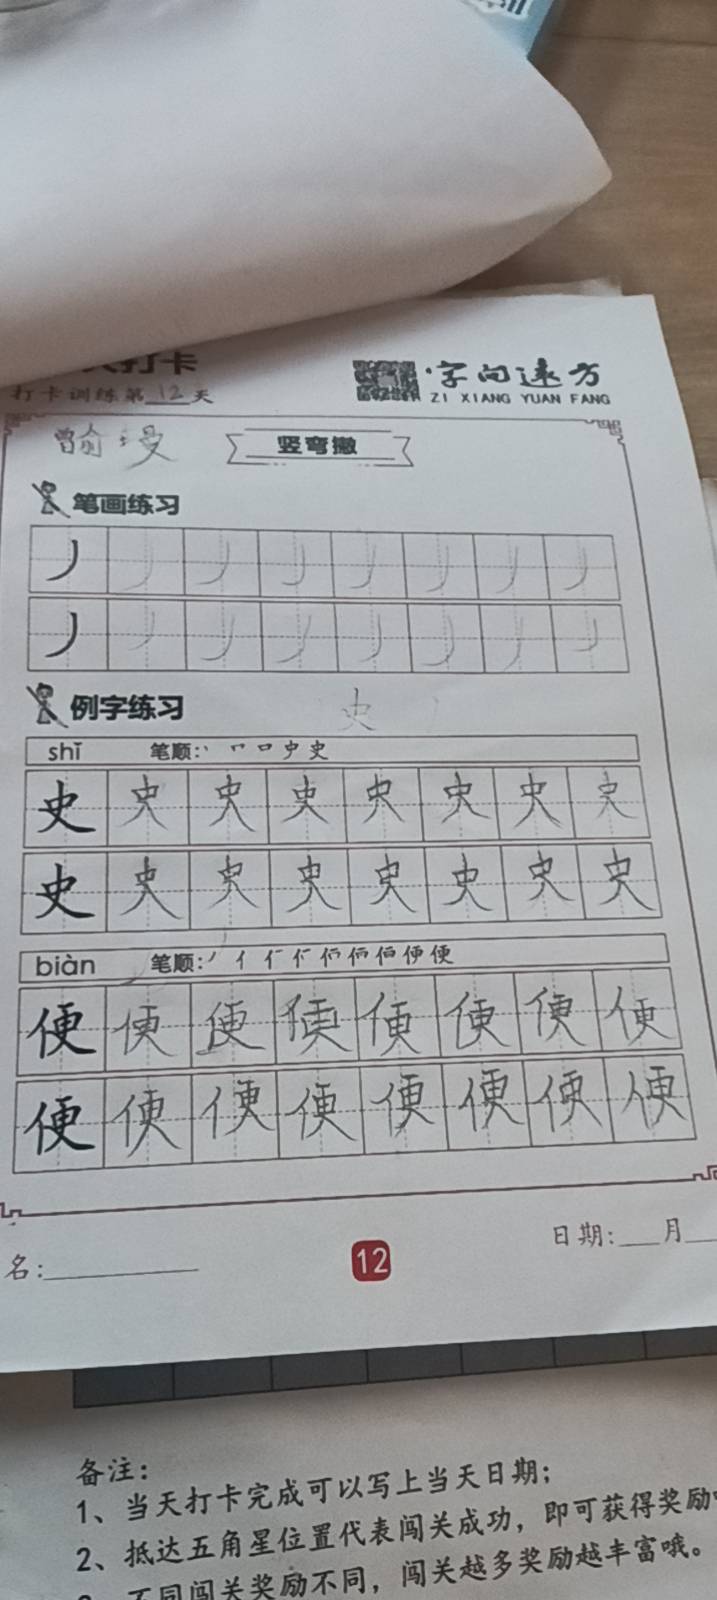 打卡
字向远方
打卡训练第12天
ZI XIANG YUAN FANG
竖弯撇
笔画练习
丿
丿
例字练习
史
shǐ 笔顺：丶 口 史
史 史 史 史 史 史 史 史
史 史 史 史 史 史 史 史
biàn 笔顺：丿 亻 便
便 便 便 便 便 便 便 便
便 便 便 便 便 便 便 便
名：
12
日期： 月
备注：
1、当天打卡完成可以写上当天日期；
2、抵达五角星位置代表闯关成功，即可获得奖励
不同闯关奖励不同，闯关越多奖励越丰富哦。